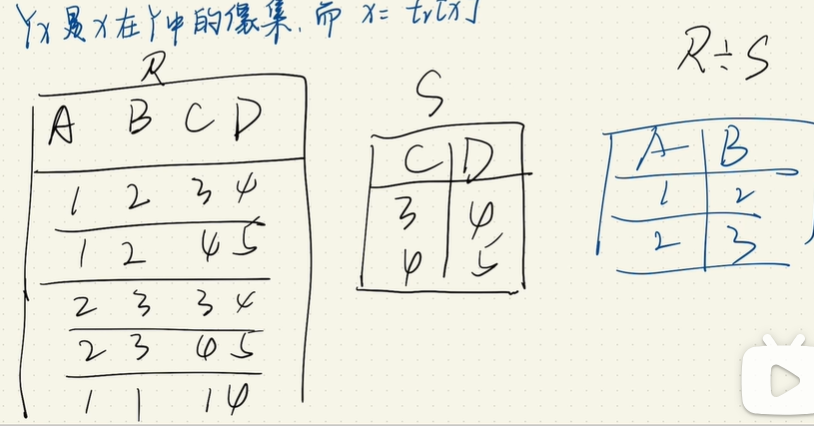 Yx是x在Y中的像集，而 x = tr[X]
R
A B C D
1 2 3 4
1 2 4 5
2 3 3 4
2 3 4 5
1 1 1 4
S
C D
3 4
4 5
R÷S
A B
1 2
2 3